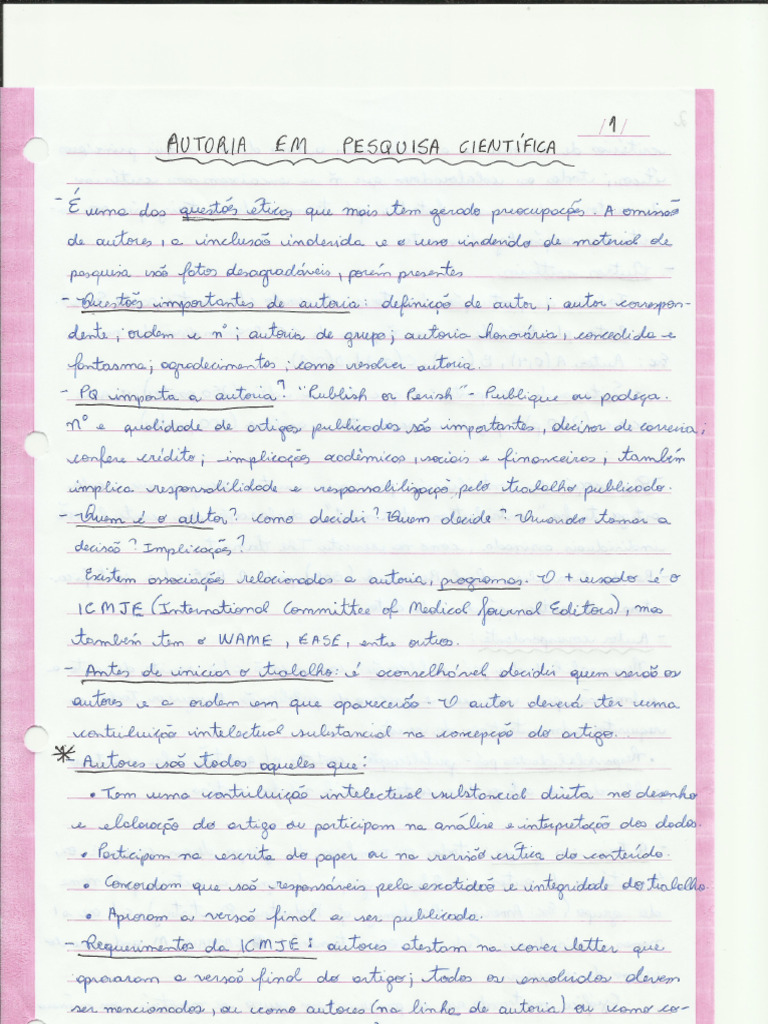 /1/
AUTORIA EM PESQUISA CIENTÍFICA
- É uma das questões éticas que mais tem gerado preocupações. A omissão
de autores, a inclusão indevida e o uso indevido de material de
pesquisa são fatos desagradáveis, porém presentes
- Questões importantes de autoria: definição de autor; autor correspon-
dente; ordem e nº; autoria de grupo; autoria honorária, concedida e
fantasma; agradecimentos; como resolver autoria.
- PQ importa a autoria? "Publish or Perish" - Publique ou padeça.
nº e qualidade de artigos publicados são importantes, decisor de carreira;
confere crédito; implicações acadêmicas, sociais e financeiras; também
implica responsabilidade e responsabilização pelo trabalho publicado.
- Quem é o autor? como decidir? Quem decide? Quando tomar a
decisão? Implicações?
Existem associações relacionadas a autoria, programas. O + usado é o
ICMJE (International Committee of Medical Journal Editors), mas
também tem o WAME, EASE, entre outros.
- Antes de iniciar o trabalho: é aconselhável decidir quem serão os
autores e a ordem em que aparecerão. O autor deverá ter uma
contribuição intelectual substancial na concepção do artigo.
* - Autores são todos aqueles que:
• Tem uma contribuição intelectual substancial direta no desenho
e elaboração do artigo ou participam na análise e interpretação dos dados.
• Participam na escrita do paper ou na revisão crítica do conteúdo.
• Concordam que são responsáveis pela exatidão e integridade do trabalho.
• Aprovam a versão final a ser publicada.
- Requerimentos da ICMJE: autores atestam na cover letter que
aprovaram a versão final do artigo; todos os envolvidos devem
ser mencionados, ou como autores (na linha de autoria) ou como co-